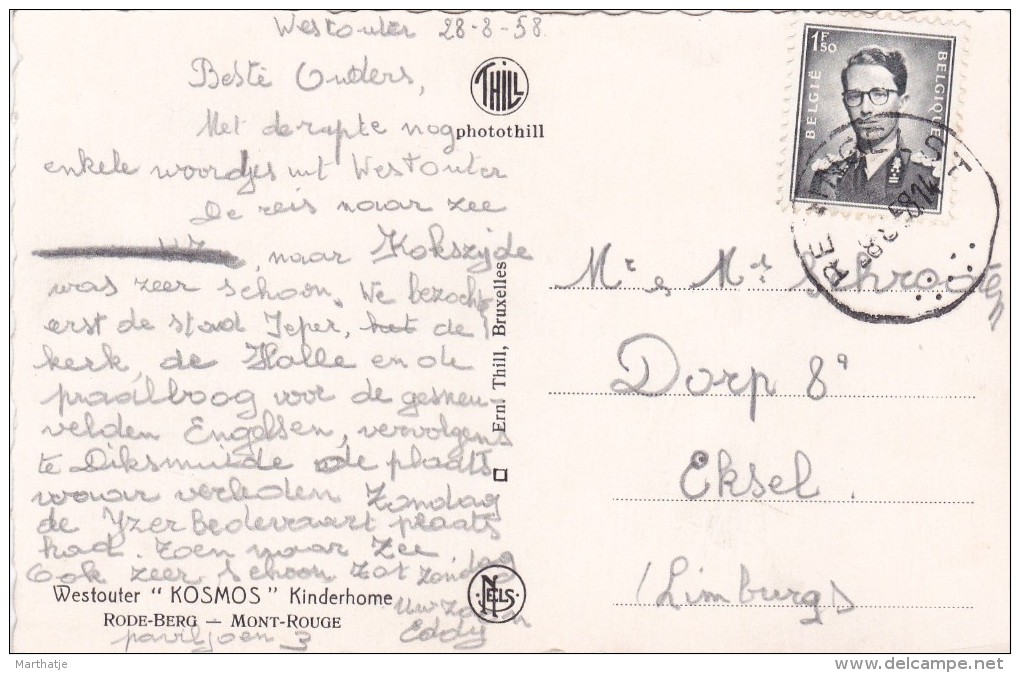 Westouter 28-8-58
Beste Ouders,
Met de rapte nog
enkele woordjes uit Westouter
De reis naar zee
, naar Kokszijde
was zeer schoon. We bezocht
erst de stad Ieper, het de
kerk, de Halle en de
praalboog voor de gesneu-
velden Engelsen, vervolgens
te Diksmuide de plaats
waar verleden Zondag
de Yzer Bedevaart plaats
had. Toen naar Zee.
Ook zeer schoon. Tot zondag
Uw zoon
Eddy
paviljoen 3
THILL
photothill
Ern. Thill, Bruxelles
NELS
Westouter "KOSMOS" Kinderhome
RODE-BERG — MONT-ROUGE
1F50
BELGIË
BELGIQUE
58.14
Mr & Me
Dorp 8a
Eksel.
(Limburg)
Marthatje
http://www.delcampe.net